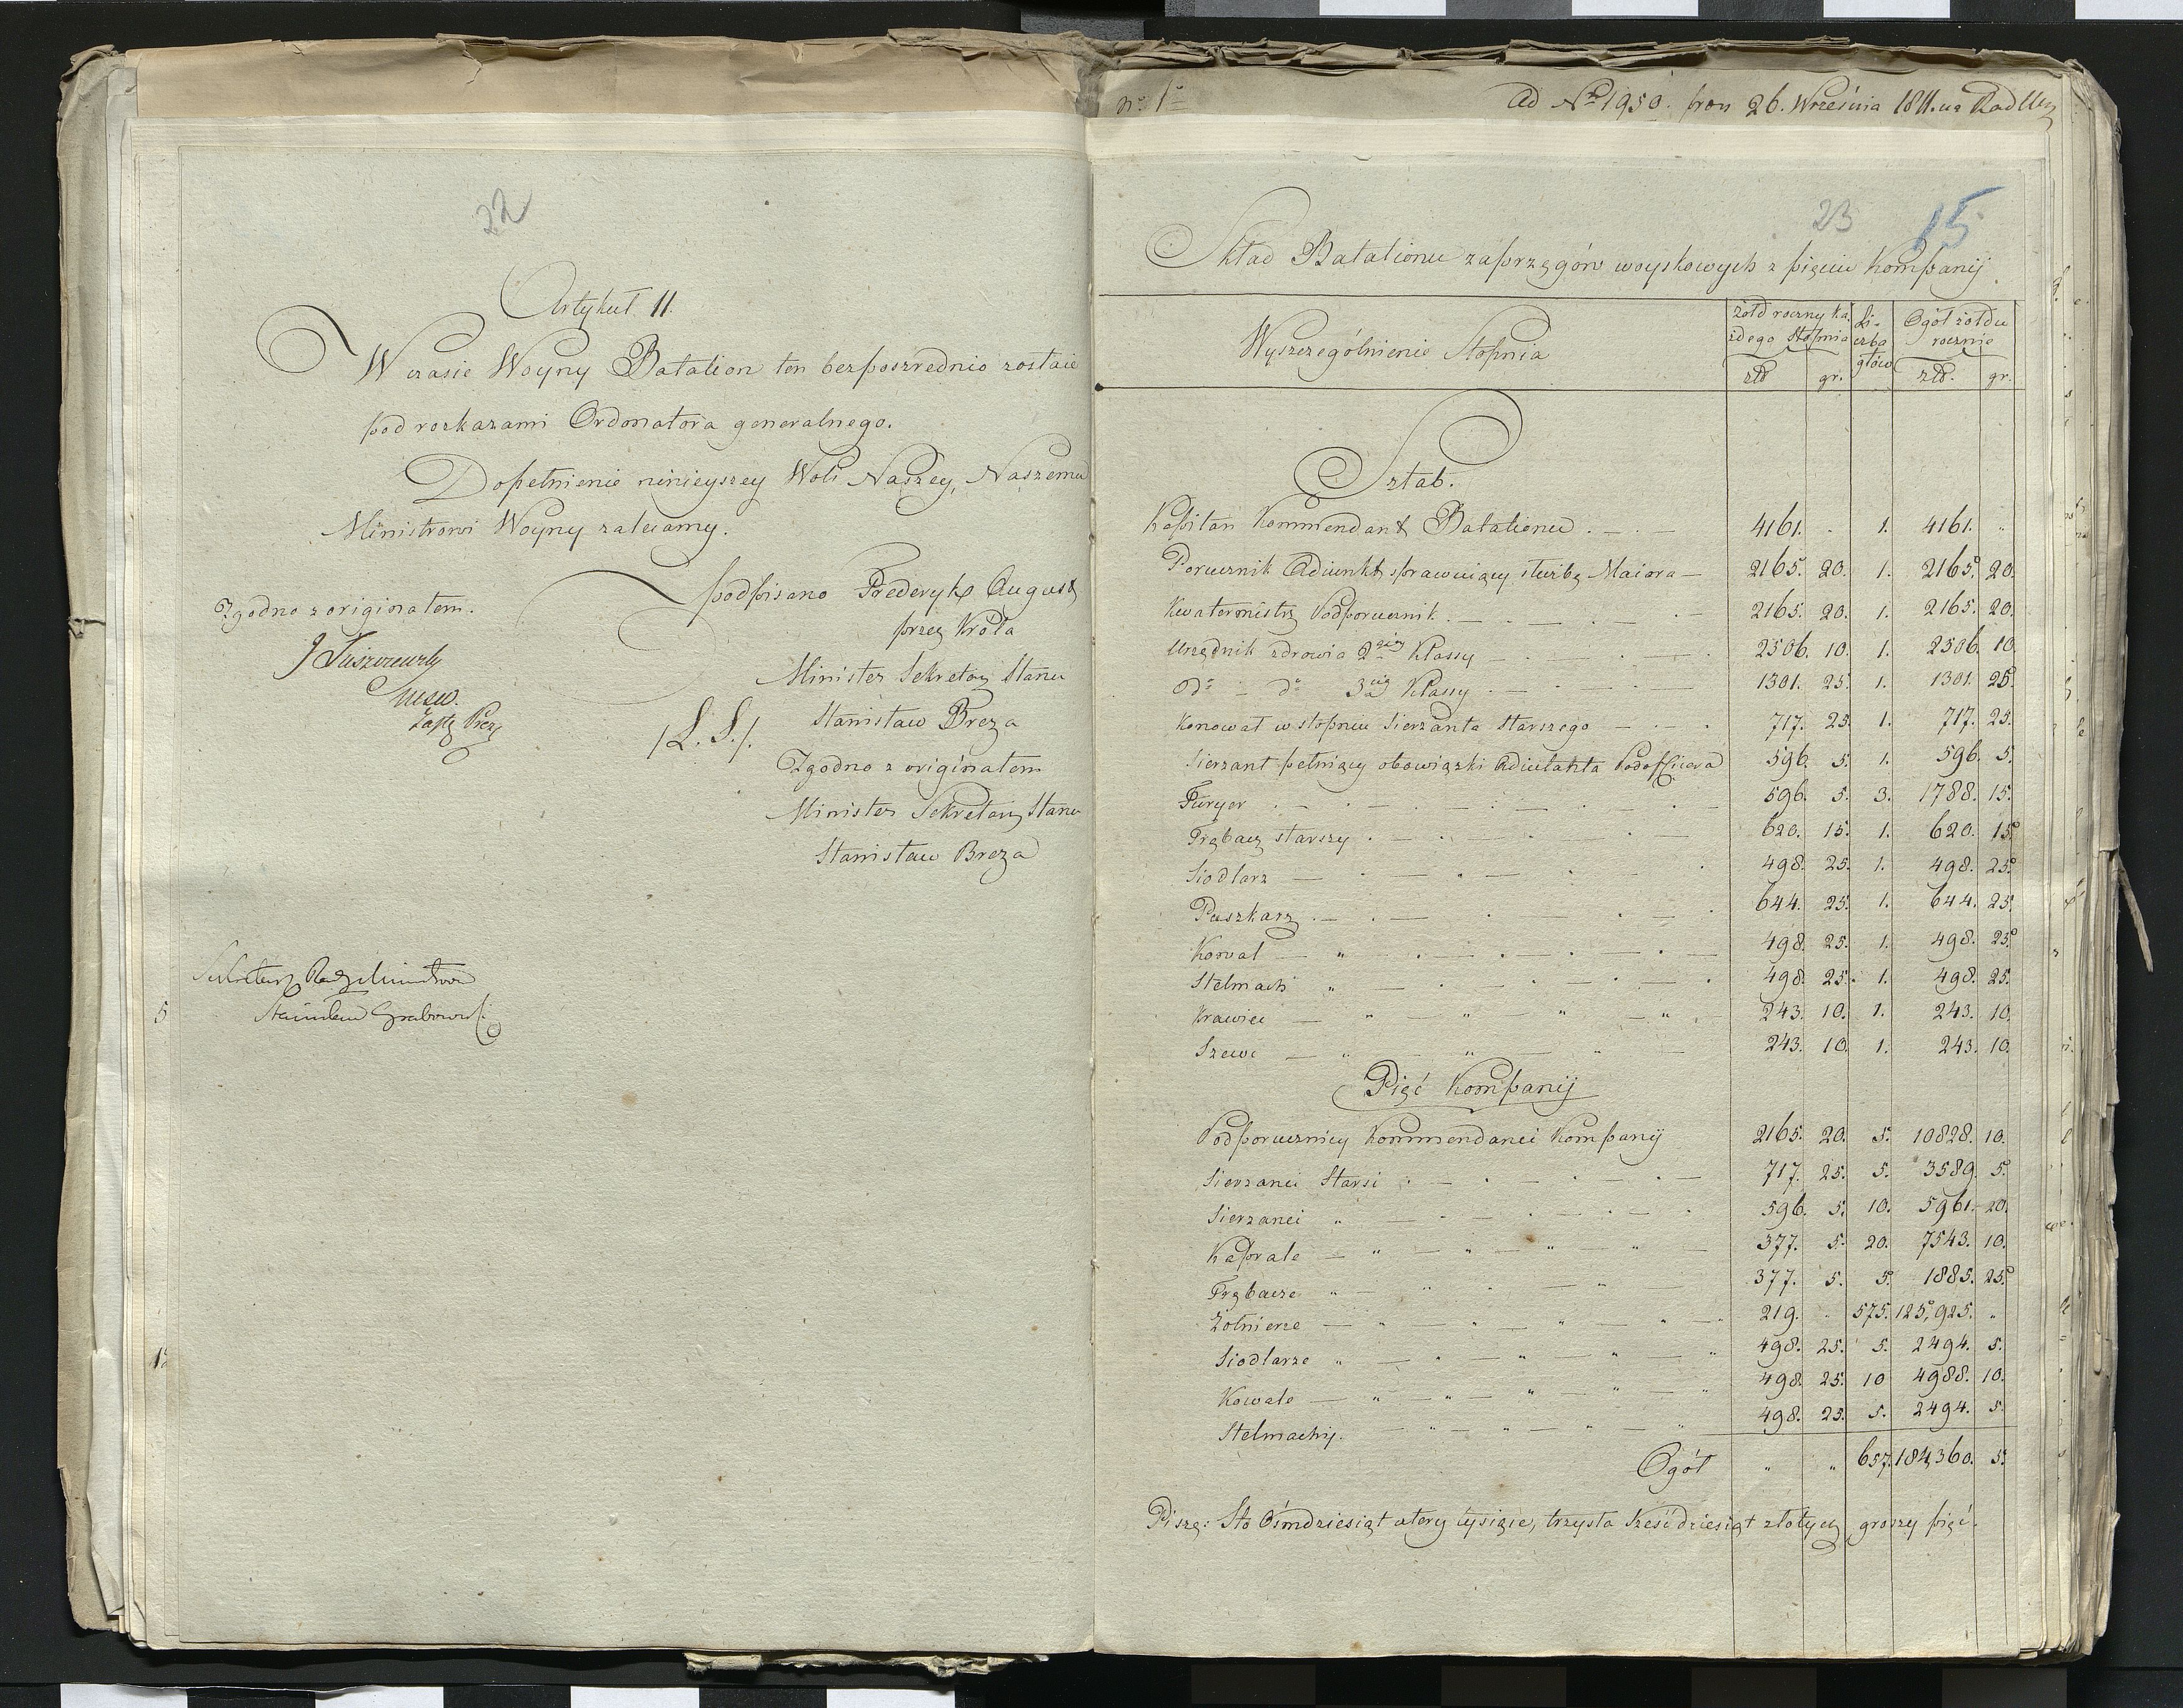 22
Artykuł 11.
W czasie Woyny Batalion ten bezposzrednio zostaie
pod rozkazami Ordonatora generalnego.
Dopełnienie ninieyszey Woli Naszey, Naszemu
Ministrowi Woyny zalecamy.
podpisano Frederyk August
Zgodno z originałem.
przez Króla
Minister Sekretarz Stanu
Zastę Prez
/L. S./. Stanisław Breza
Zgodno z originałem
Minister Sekretarz Stanu
Stanisław Breza
Sekretarz Rady Ministrów
Stanisław Grabowski
No 1o
Ad No 1950. praes 26. Września 1811. na Rad Min
23 15
Skład Batalionu zaprzęgów woyskowych z pięciu Kompanij.
Wyszczególnienie Stopnia | żołd roczny ka-żdego Stopnia złp gr. | Li-czba głów | Ogół żołdu rocznie złp. gr.
Sztab.
Kapitan Kommendant Batalionu . — . — 4161. . 1. 4161. "
Porucznik Adiunkt sprawuiący służbę Maiora — 2165. 20. 1. 2165. 20.
Kwatermistrz Podporucznik . — . — . — . — 2165. 20. 1. 2165. 20.
Urzędnik zdrowia 2giey Klassy — . — . — . 2506. 10. 1. 2506. 10.
do — do 3ciey Klassy . — . — . — 1301. 25. 1. 1301. 25.
Konował w stopniu Sierżanta Starszego — . — . 717. 25. 1. 717. 25.
Sierżant pełniący obowiązki Adiutanta Podofficera 596. 5. 1. 596. 5.
Furyer . — . — . — . — . — 596. 5. 3. 1788. 15.
Trębacz starszy . — . — . — . — 620. 15. 1. 620. 15.
Siodlarz — . — . — . — . 498. 25. 1. 498. 25.
Puszkarz . — . — . — . — . 644. 25. 1. 644. 25.
Kowal — " — . — . — . — . — 498. 25. 1. 498. 25.
Stelmach " — . — . — . — . 498. 25. 1. 498. 25.
Krawiec — " — " — " — " — 243. 10. 1. 243. 10.
Szewc — " — " — " — 243. 10. 1. 243. 10.
Pięć Kompanij
Podporucznicy Kommendanci Kompanij 2165. 20. 5. 10828. 10.
Sierżanci Starsi . — . — . — . — 717. 25. 5. 3589. 5.
Sierżanci " — . — . — . — . 596. 5. 10. 5961. 20.
Kaprale — " — " — " — " — 377. 5. 20. 7543. 10.
Trębacze " — " — . — " 377. 5. 5. 1885. 25.
Żołnierze — " — " — " — " — " 219. . 575. 125,925. "
Siodlarze " — " — " — " — " 498. 25. 5. 2494. 5.
Kowale — " — " — " — " — " 498. 25. 10 4988. 10.
Stelmachy. — " — " — " — " 498. 25. 5. 2494. 5.
Ogół " " 657. 184,360. 5.
Piszę: Sto Ośmdziesiąt cztery tysiące, trzysta sześćdziesiąt złotych groszy pięć.